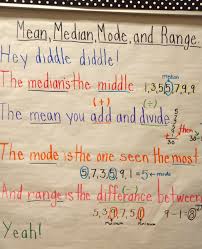 Mean, Median, Mode, and Range
Hey diddle diddle!
median
The median is the middle 1,3,5,5,7,9,9
(+) (÷)
The mean you add and divide
then
The mode is the one seen the most
5,7,3,5,9,1 = 5 ← mode
(-)
And range is the difference between
5,3,9,7,5,1 9-1=8
Maximum Minimum
Yeah!